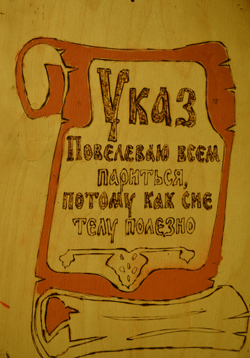 Указ
Повелеваю всем
париться,
потому как сие
телу полезно